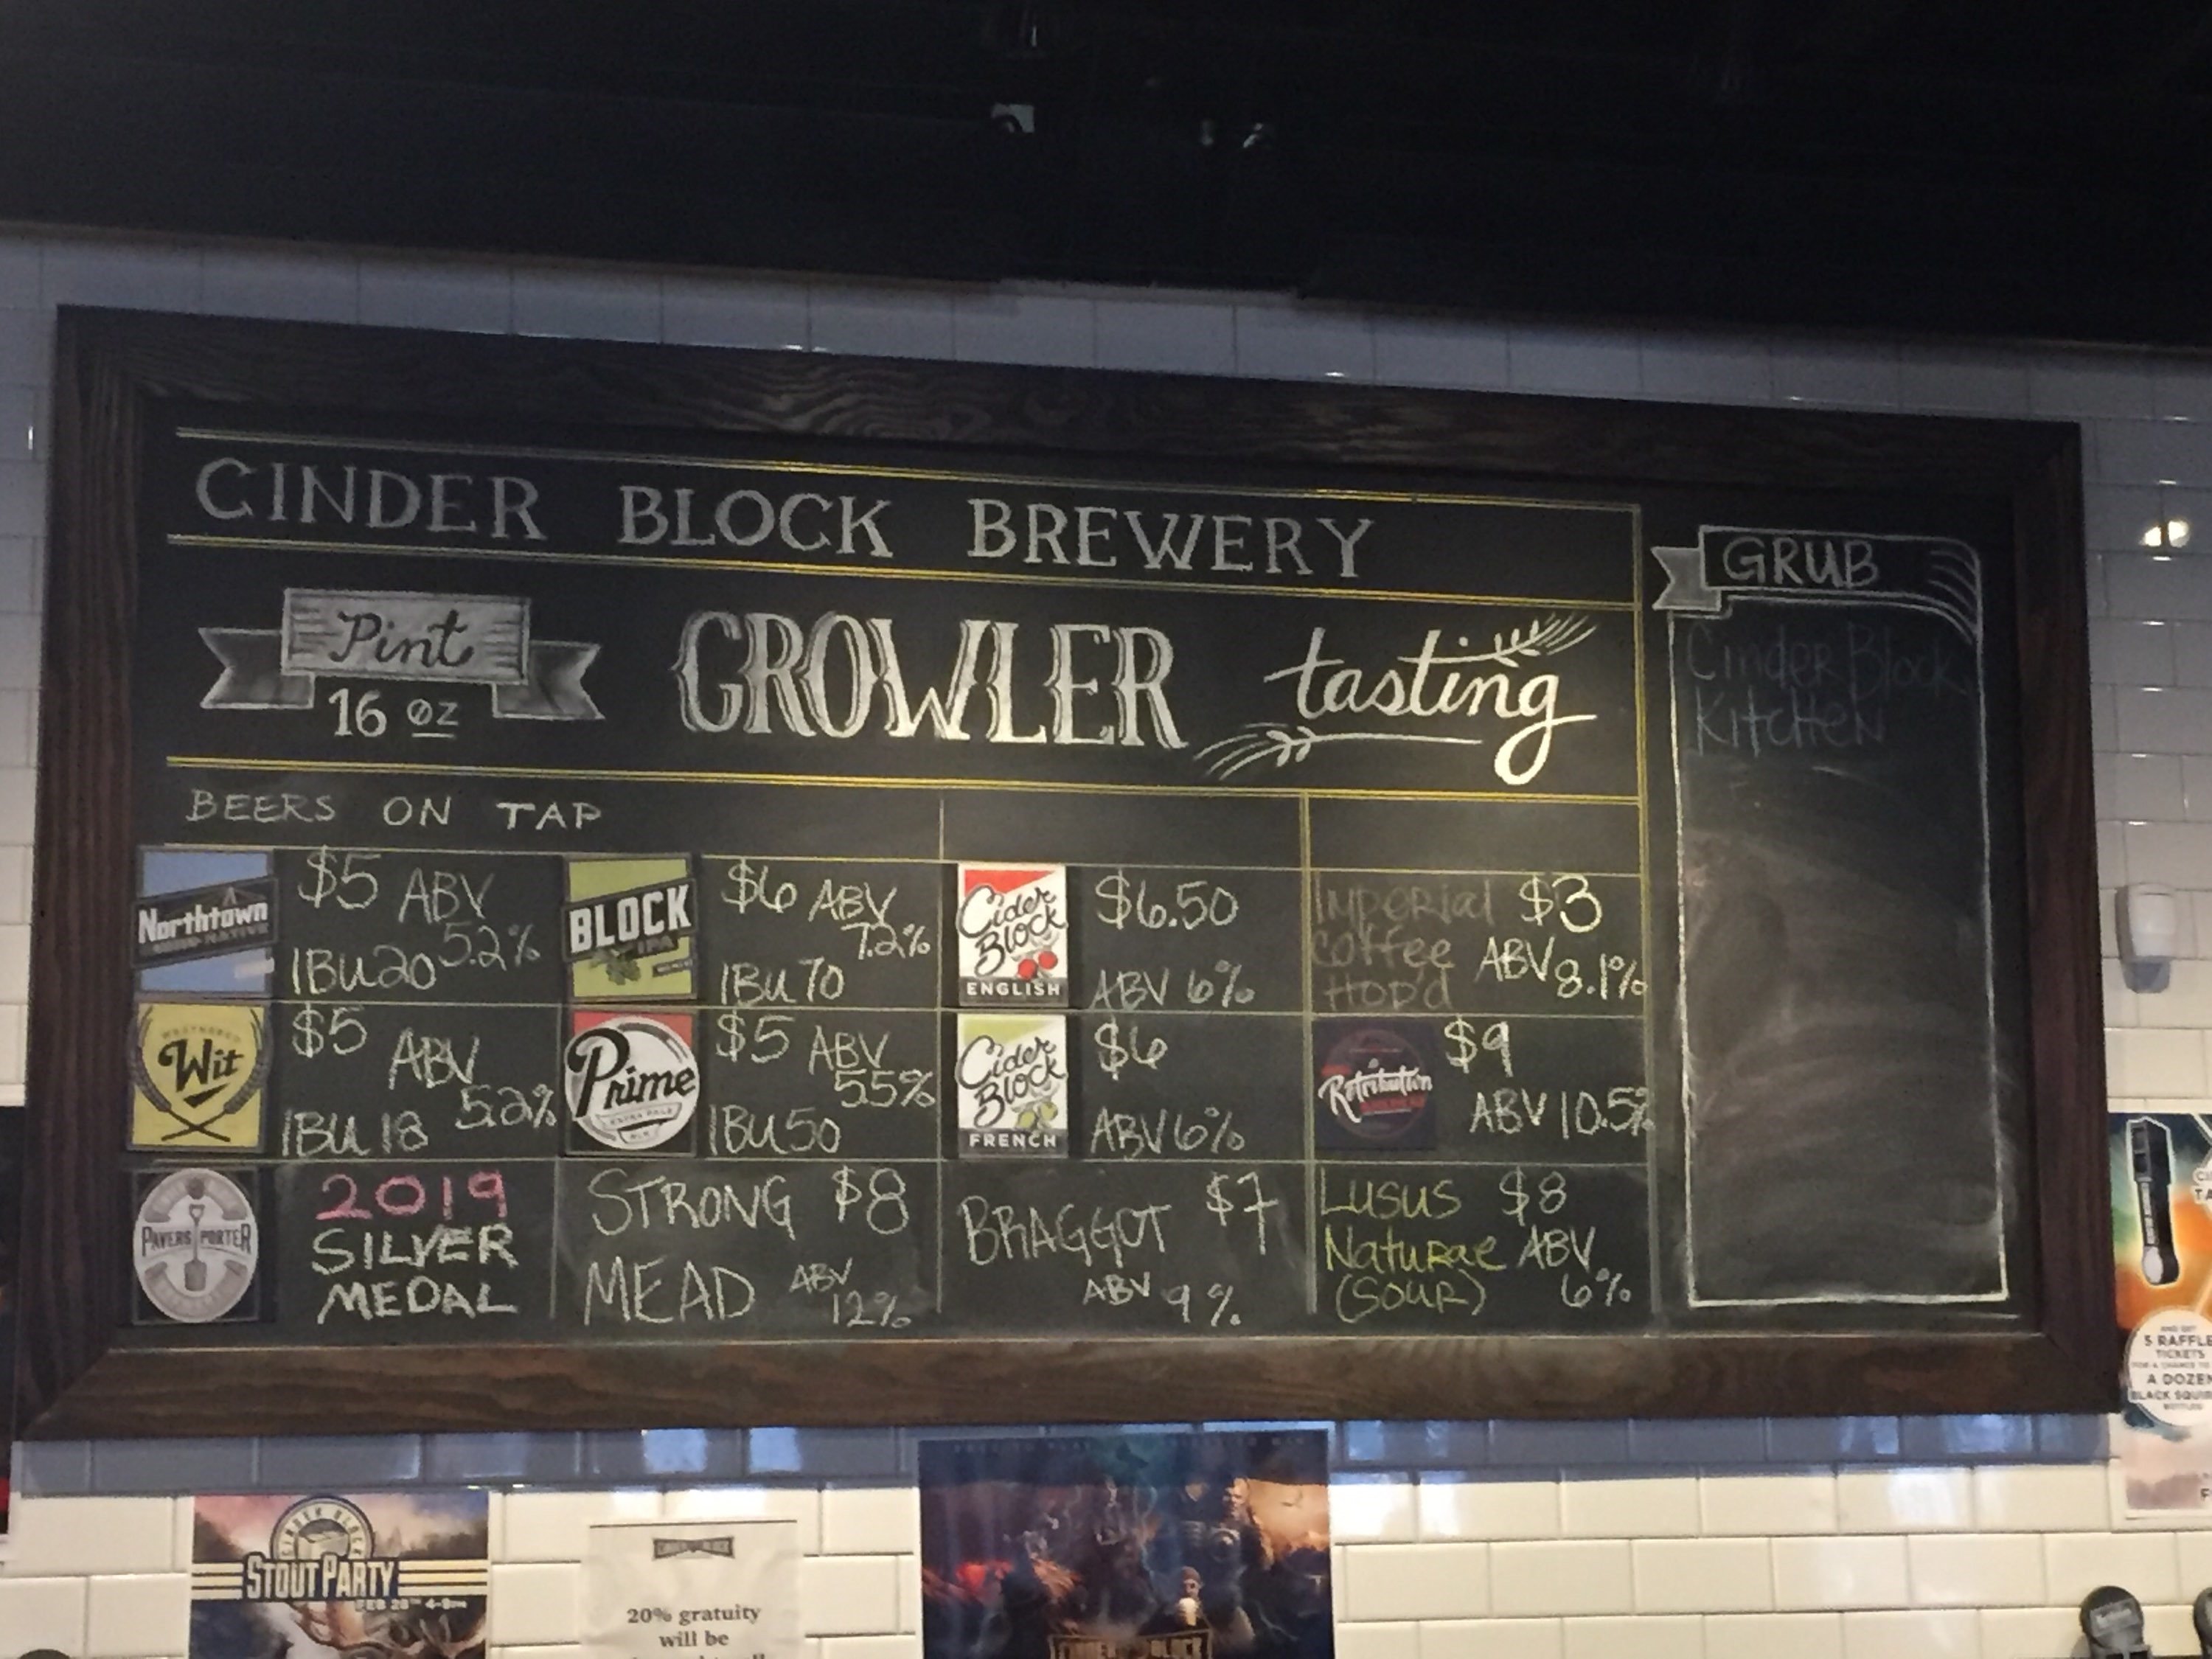 CINDER BLOCK BREWERY
Pint
16 oz
GROWLER
tasting
GRUB
Cinder Block
Kitchen
BEERS ON TAP
Northtown
$5 ABV
5.2%
IBU 20
BLOCK
IPA
$6 ABV
7.2%
IBU 70
Cider
Block
ENGLISH
$6.50
ABV 6%
Imperial $3
Coffee ABV
Hop'd 8.1%
Wit
$5
ABV
5.2%
IBU 18
Prime
EXTRA PALE
$5 ABV
5.5%
IBU 50
Cider
Block
FRENCH
$6
ABV 6%
Retribution
$9
ABV 10.5%
PAVERS PORTER
2019
SILVER
MEDAL
STRONG $8
MEAD ABV
12%
BRAGGOT $7
ABV 9%
Lusus $8
Naturae ABV
(Sour) 6%
AND GET
5 RAFFLE
TICKETS
A DOZEN
CINDER BLOCK
STOUT PARTY
FEB 28TH 4-8PM
CINDER BLOCK
20% gratuity
will be
CINDER BLOCK